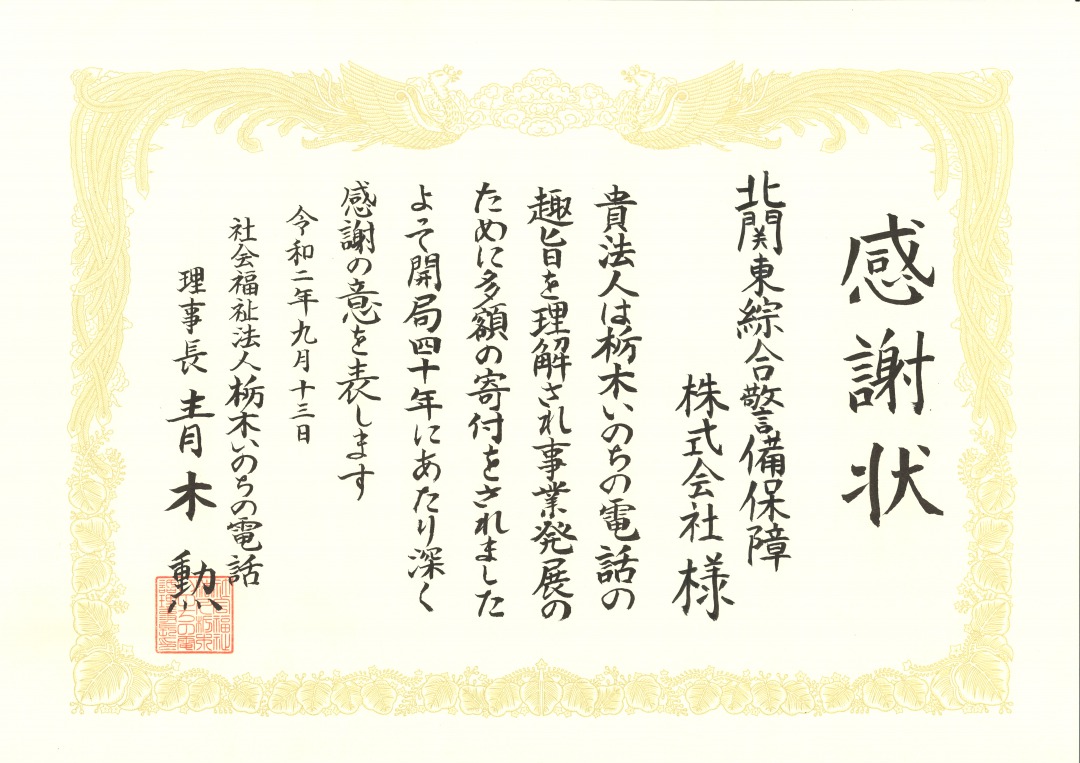 感謝状
北関東綜合警備保障
株式会社様
貴法人は栃木いのちの電話の
趣旨を理解され事業発展の
ために多額の寄付をされました
よって開局四十年にあたり深く
感謝の意を表します
令和二年九月十三日
社会福祉法人栃木いのちの電話
理事長 青木 勲